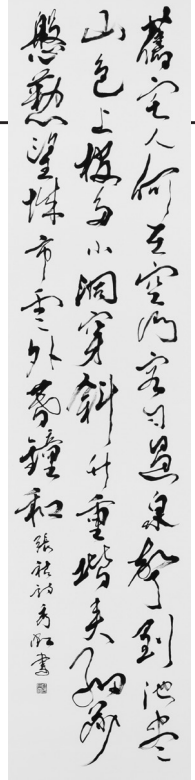 舊宅人何在空門客自過泉聲到池盡
山色上樓多小洞穿斜竹重階夾細莎
慇懃望城市雲外暮鐘和張祜詩秀書